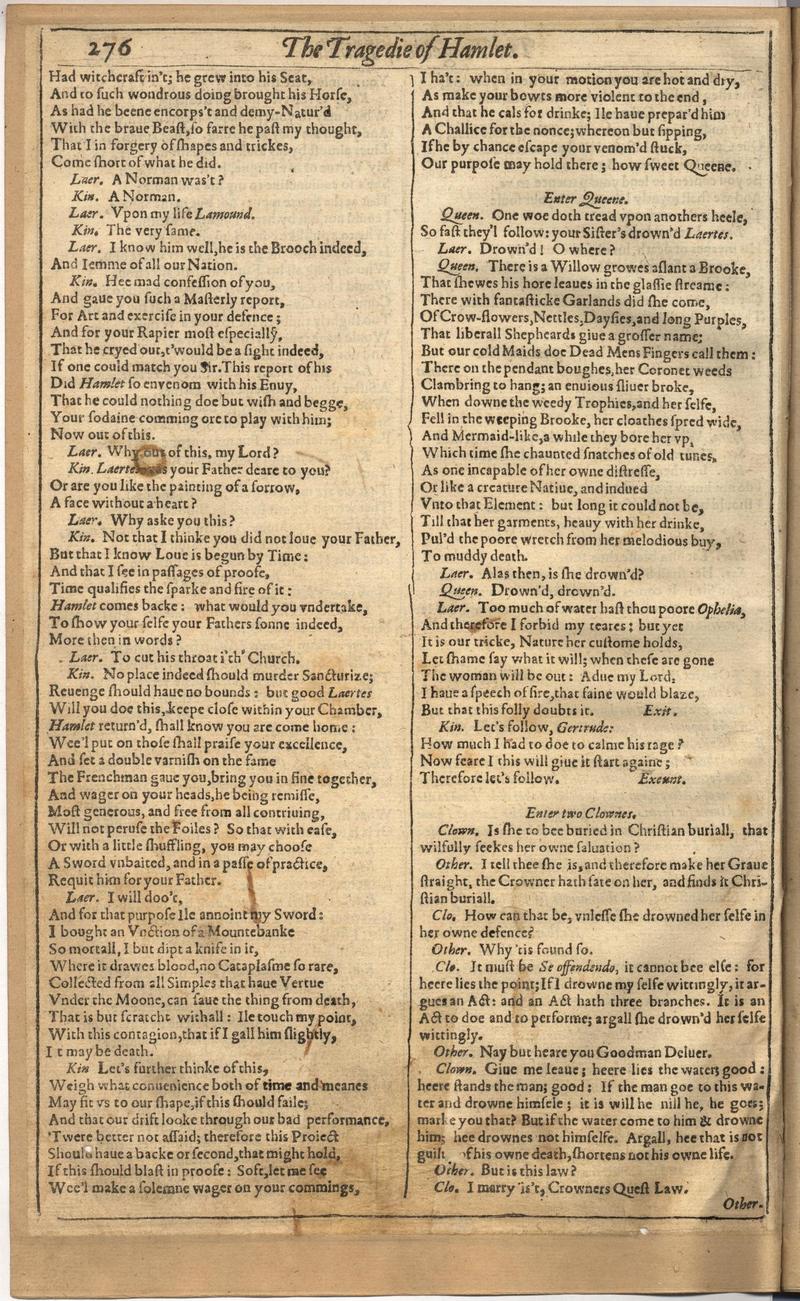 276
The Tragedie of Hamlet.
Had witchcraft in't; he grew into his Seat,
And to such wondrous doing brought his Horse,
As had he beene encorps't and demy-Natur'd
With the braue Beast, so farre he past my thought,
That I in forgery of shapes and trickes,
Come short of what he did.
Laer. A Norman was't?
Kin. A Norman.
Laer. Vpon my life Lamound.
Kin. The very same.
Laer. I know him well, he is the Brooch indeed,
And Iemme of all our Nation.
Kin. Hee mad confession of you,
And gaue you such a Masterly report,
For Art and exercise in your defence;
And for your Rapier most especially,
That he cryed out, t'would be a sight indeed,
If one could match you Sir. This report of his
Did Hamlet so envenom with his Enuy,
That he could nothing doe but wish and begge,
Your sodaine comming ore to play with him;
Now out of this.
Laer. Why out of this, my Lord?
Kin. Laertes was your Father deare to you?
Or are you like the painting of a sorrow,
A face without a heart?
Laer. Why aske you this?
Kin. Not that I thinke you did not loue your Father,
But that I know Loue is begun by Time:
And that I see in passages of proofe,
Time qualifies the sparke and fire of it:
Hamlet comes backe: what would you vndertake,
To show your selfe your Fathers sonne indeed,
More then in words?
Laer. To cut his throat i'th' Church.
Kin. No place indeed should murder Sancturize;
Reuenge should haue no bounds: but good Laertes
Will you doe this, keepe close within your Chamber,
Hamlet return'd, shall know you are come home:
Wee'l put on those shall praise your excellence,
And set a double varnish on the fame
The Frenchman gaue you, bring you in fine together,
And wager on your heads, he being remisse,
Most generous, and free from all contriuing,
Will not peruse the Foiles? So that with ease,
Or with a little shuffling, you may choose
A Sword vnbaited, and in a passe of practice,
Requit him for your Father.
Laer. I will doo't,
And for that purpose Ile annoint my Sword:
I bought an Vnction of a Mountebanke
So mortall, I but dipt a knife in it,
Where it drawes blood, no Cataplasme so rare,
Collected from all Simples that haue Vertue
Vnder the Moone, can saue the thing from death,
That is but scratcht withall: Ile touch my point,
With this contagion, that if I gall him slightly,
It may be death.
Kin Let's further thinke of this,
Weigh what conuenience both of time and meanes
May fit vs to our shape, if this should faile;
And that our drift looke through our bad performance,
'Twere better not assaid; therefore this Proiect
Should haue a backe or second, that might hold,
If this should blast in proofe: Soft, let me see
Wee'l make a solemne wager on your commings,
I ha't: when in your motion you are hot and dry,
As make your bowts more violent to the end,
And that he cals for drinke; Ile haue prepar'd him
A Challice for the nonce; whereon but sipping,
If he by chance escape your venom'd stuck,
Our purpose may hold there; how sweet Queene.
Enter Queene.
Queen. One woe doth tread vpon anothers heele,
So fast they'l follow: your Sister's drown'd Laertes.
Laer. Drown'd! O where?
Queen. There is a Willow growes aslant a Brooke,
That shewes his hore leaues in the glassie streame:
There with fantasticke Garlands did she come,
Of Crow-flowers, Nettles, Daysies, and long Purples,
That liberall Shepheards giue a grosser name;
But our cold Maids doe Dead Mens Fingers call them:
There on the pendant boughes, her Coronet weeds
Clambring to hang; an enuious sliuer broke,
When downe the weedy Trophies, and her selfe,
Fell in the weeping Brooke, her cloathes spred wide,
And Mermaid-like, a while they bore her vp,
Which time she chaunted snatches of old tunes,
As one incapable of her owne distresse,
Or like a creature Natiue, and indued
Vnto that Element: but long it could not be,
Till that her garments, heauy with her drinke,
Pul'd the poore wretch from her melodious buy,
To muddy death.
Laer. Alas then, is she drown'd?
Queen. Drown'd, drown'd.
Laer. Too much of water hast thou poore Ophelia,
And therefore I forbid my teares: but yet
It is our tricke, Nature her custome holds,
Let shame say what it will; when these are gone
The woman will be out: Adue my Lord,
I haue a speech of fire, that faine would blaze,
But that this folly doubts it. Exit.
Kin. Let's follow, Gertrude:
How much I had to doe to calme his rage?
Now feare I this will giue it start againe;
Therefore let's follow. Exeunt.
Enter two Clownes.
Clown. Is she to bee buried in Christian buriall, that
wilfully seekes her owne saluation?
Other. I tell thee she is, and therefore make her Graue
straight, the Crowner hath sate on her, and finds it Chri-
stian buriall.
Clo. How can that be, vnlesse she drowned her selfe in
her owne defence?
Other. Why 'tis found so.
Clo. It must be Se offendendo, it cannot bee else: for
heere lies the point; If I drowne my selfe wittingly, it ar-
gues an Act: and an Act hath three branches. It is an
Act to doe and to performe; argall she drown'd her selfe
wittingly.
Other. Nay but heare you Goodman Deluer.
Clown. Giue me leaue; heere lies the water; good:
heere stands the man; good: If the man goe to this wa-
ter and drowne himsele; it is will he nill he, he goes;
marke you that? But if the water come to him & drowne
him; hee drownes not himselfe. Argall, hee that is not
guilt of his owne death, shortens not his owne life.
Other. But is this law?
Clo. I marry is't, Crowners Quest Law.
Other.